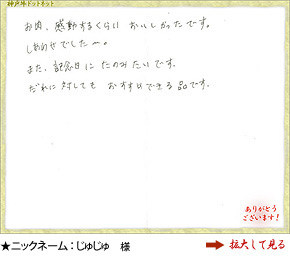 神戸牛ドットネット
お肉、感動するくらい おいしかったです。
しあわせでした〜。
また、記念日に たのみたいです。
だれに対しても おすすめできる品です。
ありがとう
ございます!
★ニックネーム：じゅじゅ 様
➡ 拡大して見る